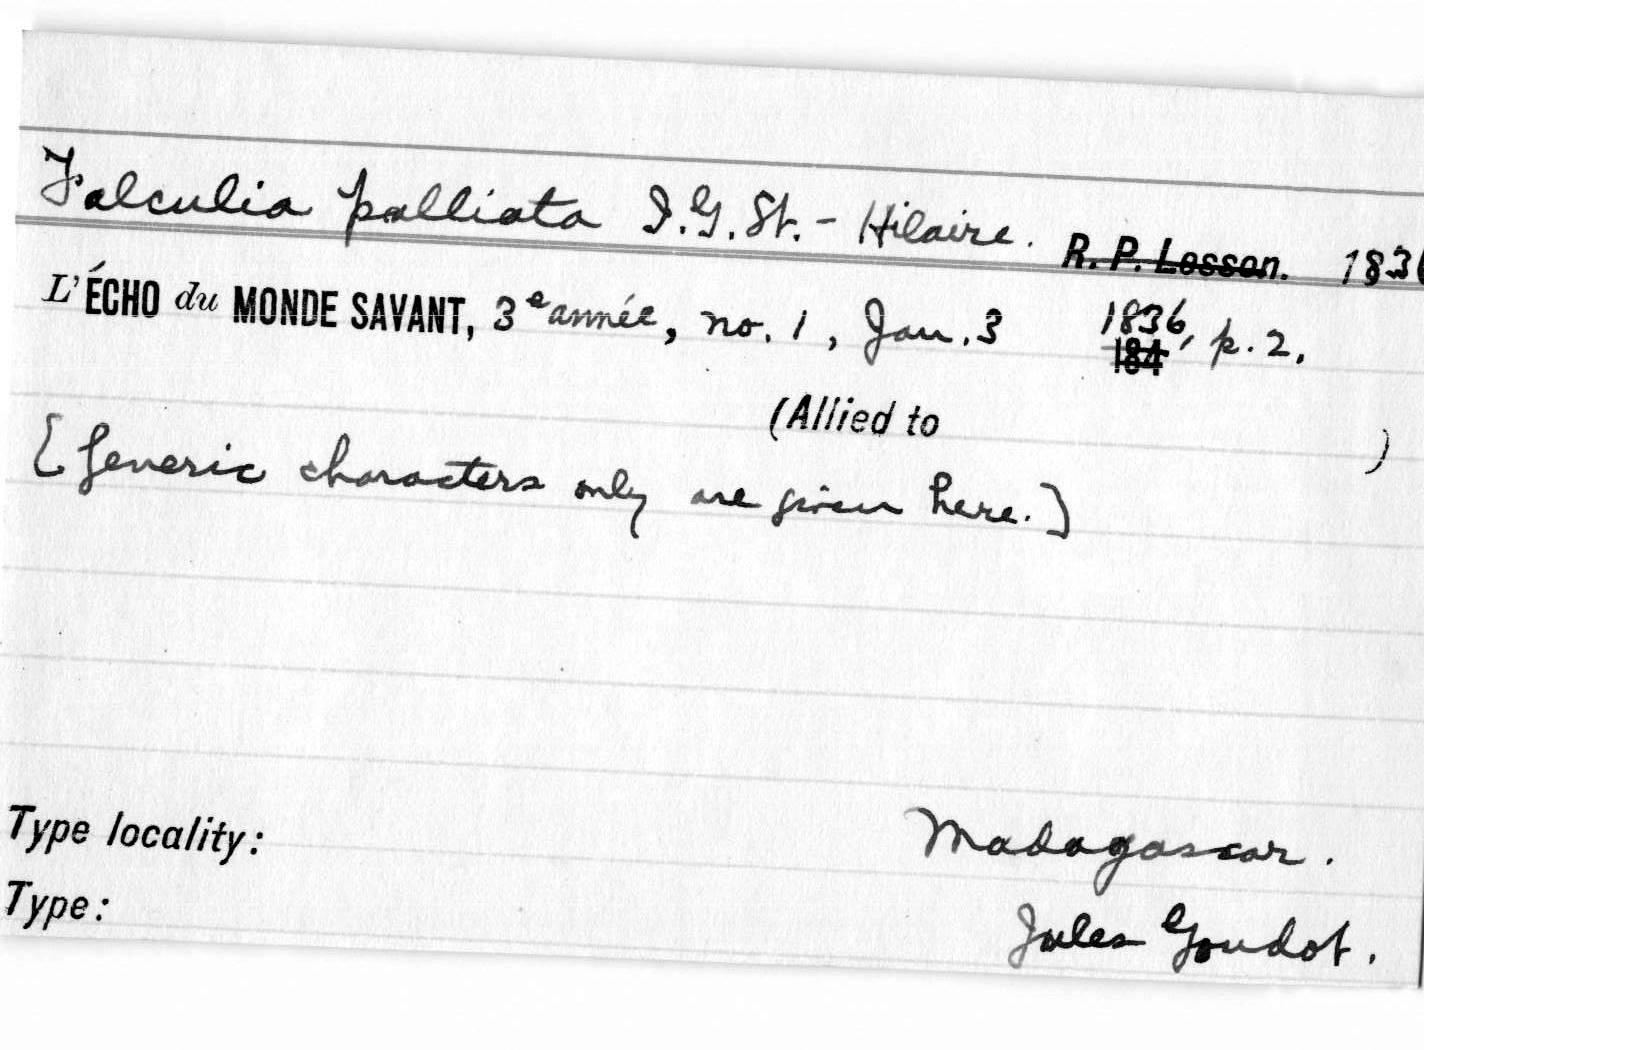 Falculia palliata I.G.St.-Hilaire. R. P. Lesson. 1836
L'ÉCHO du MONDE SAVANT, 3e année, no. 1, Jan. 3 1836, p. 2.
184
(Allied to )
[Generic characters only are given here.]
Type locality: Madagascar.
Type: Jules Goudot.